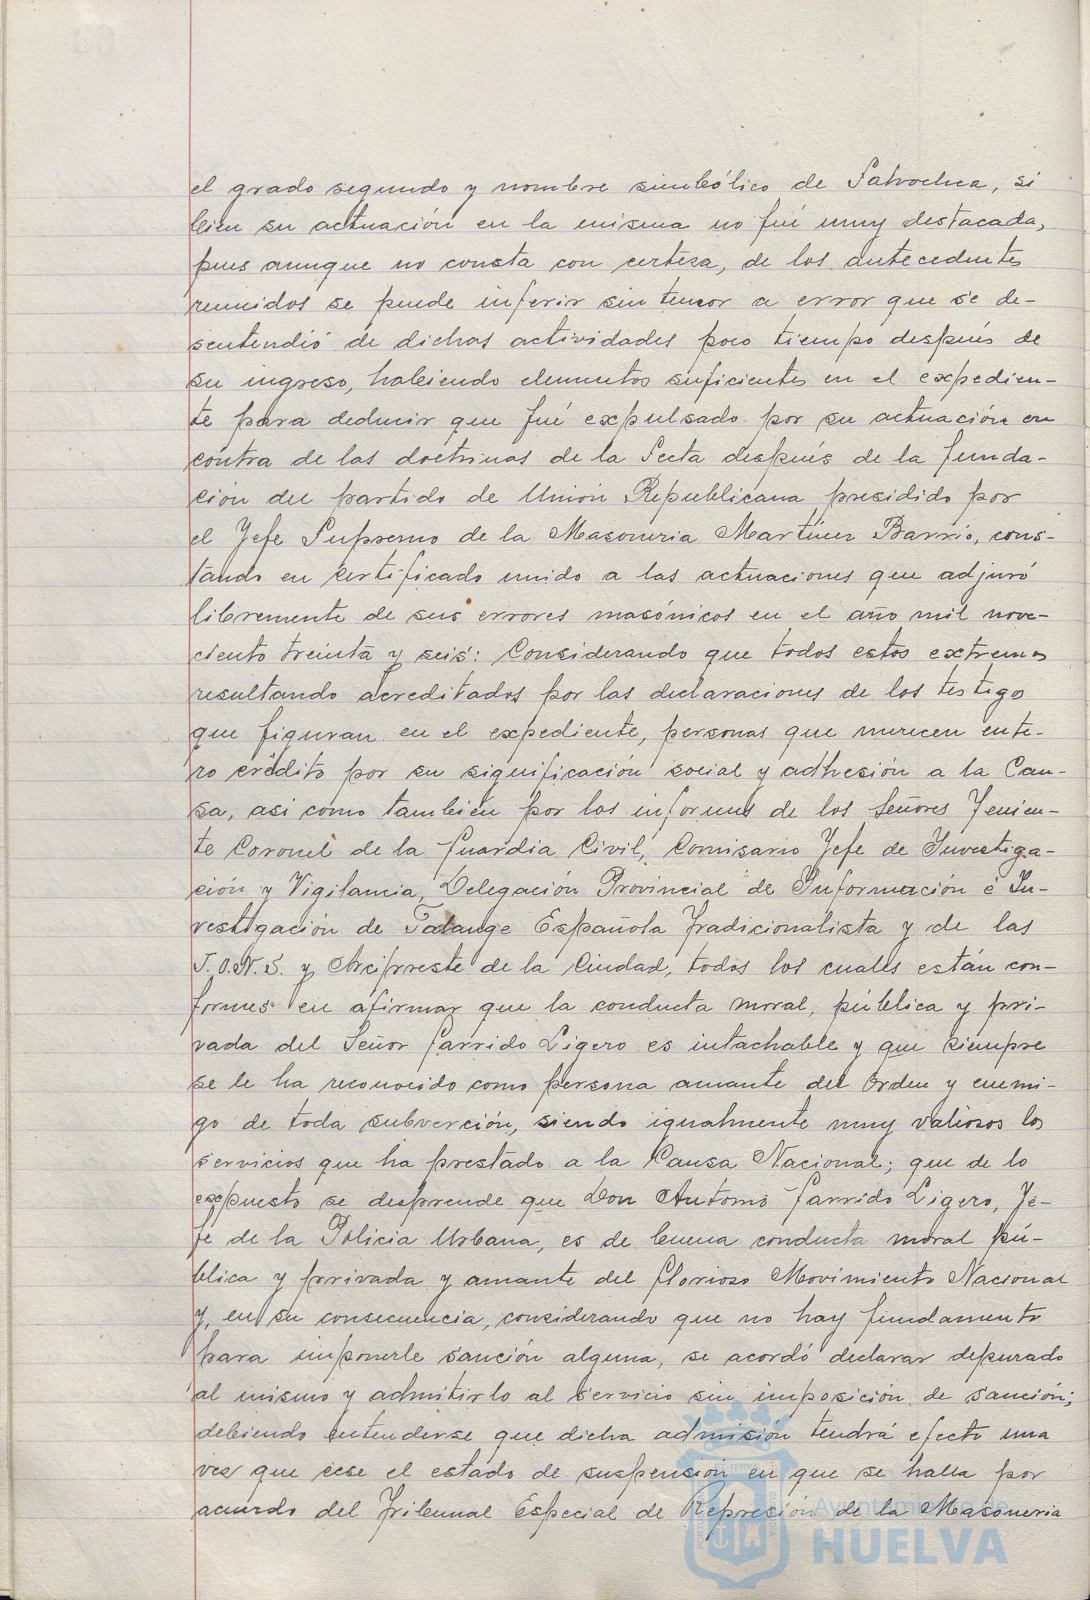 el grado segundo y nombre simbólico de Salvochea, si
bien su actuación en la misma no fué muy destacada,
pues aunque no consta con certeza, de los antecedentes
reunidos se puede inferir sin temor a error que se de-
sentendió de dichas actividades poco tiempo después de
su ingreso, habiendo elementos suficientes en el expedien-
te para deducir que fué expulsado por su actuación en
contra de las doctrinas de la Secta después de la funda-
ción del partido de Unión Republicana presidido por
el Jefe Supremo de la Masoneria Martinez Barrio, cons-
tando en certificado unido a las actuaciones que adjuró
libremente de sus errores masónicos en el año mil nove-
ciento treinta y seis: Considerando que todos estos extremos
resultando acreditados por las declaraciones de los testigos
que figuran en el expediente, personas que merecen ente-
ro crédito por su significación social y adhesión a la Cau-
sa, asi como también por los informes de los Señores Tenien-
te Coronel de la Guardia Civil, Comisario Jefe de Investiga-
ción y Vigilancia, Delegación Provincial de Información é In-
vestigación de Falange Española Tradicionalista y de las
J.O.N.S. y Arcipreste de la Ciudad, todos los cuales están con-
formes en afirmar que la conducta moral, pública y pri-
vada del Señor Garrido Ligero es intachable y que siempre
se le ha reconocido como persona amante del Orden y enemi-
go de toda subverción, siendo igualmente muy valiosos los
servicios que ha prestado a la Causa Nacional; que de lo
expuesto se desprende que Don Antonio Garrido Ligero, Je-
fe de la Policia Urbana, es de buena conducta moral pú-
blica y privada y amante del Glorioso Movimiento Nacional
y, en su consecuencia, considerando que no hay fundamento
para imponerle sanción alguna, se acordó declarar depurado
al mismo y admitirlo al servicio sin imposición de sanción;
debiendo entenderse que dicha admisión tendrá efecto una
vez que cese el estado de suspensión en que se halla por
acuerdo del Tribunal Especial de Represión de la Masoneria
Ayuntamiento de
HUELVA